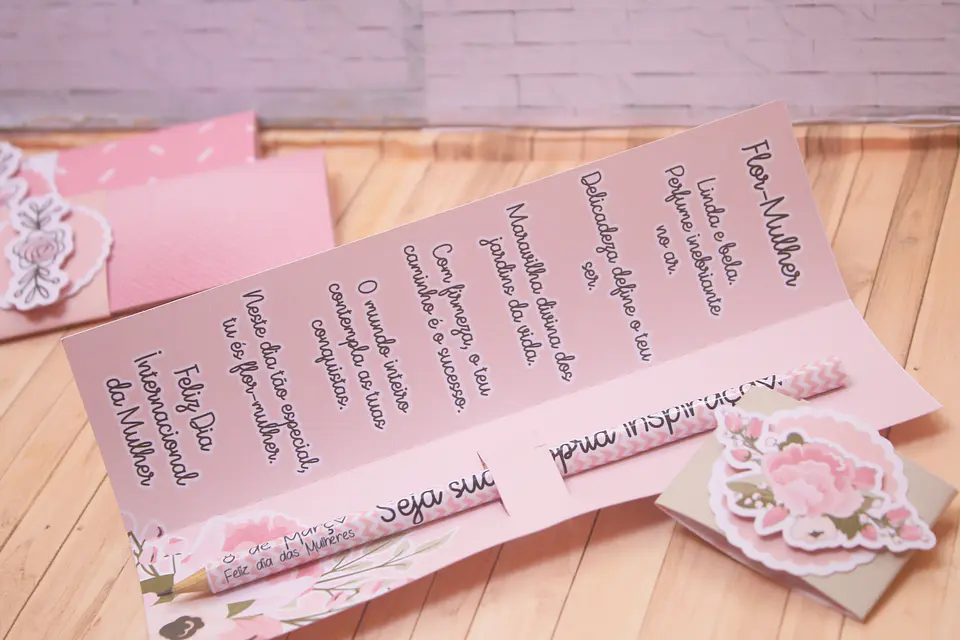 Flor-Mulher
Linda e bela.
Perfume inebriante
no ar.
Delicadeza define o teu
ser.
Maravilha divina dos
jardins da vida.
Com firmeza, o teu
caminho é o sucesso.
O mundo inteiro
contempla as tuas
conquistas.
Neste dia tão especial,
tu és flor-mulher.
Feliz Dia
Internacional
da Mulher
Seja sua pria inspiração.
8 de Março
Feliz dia das Mulheres